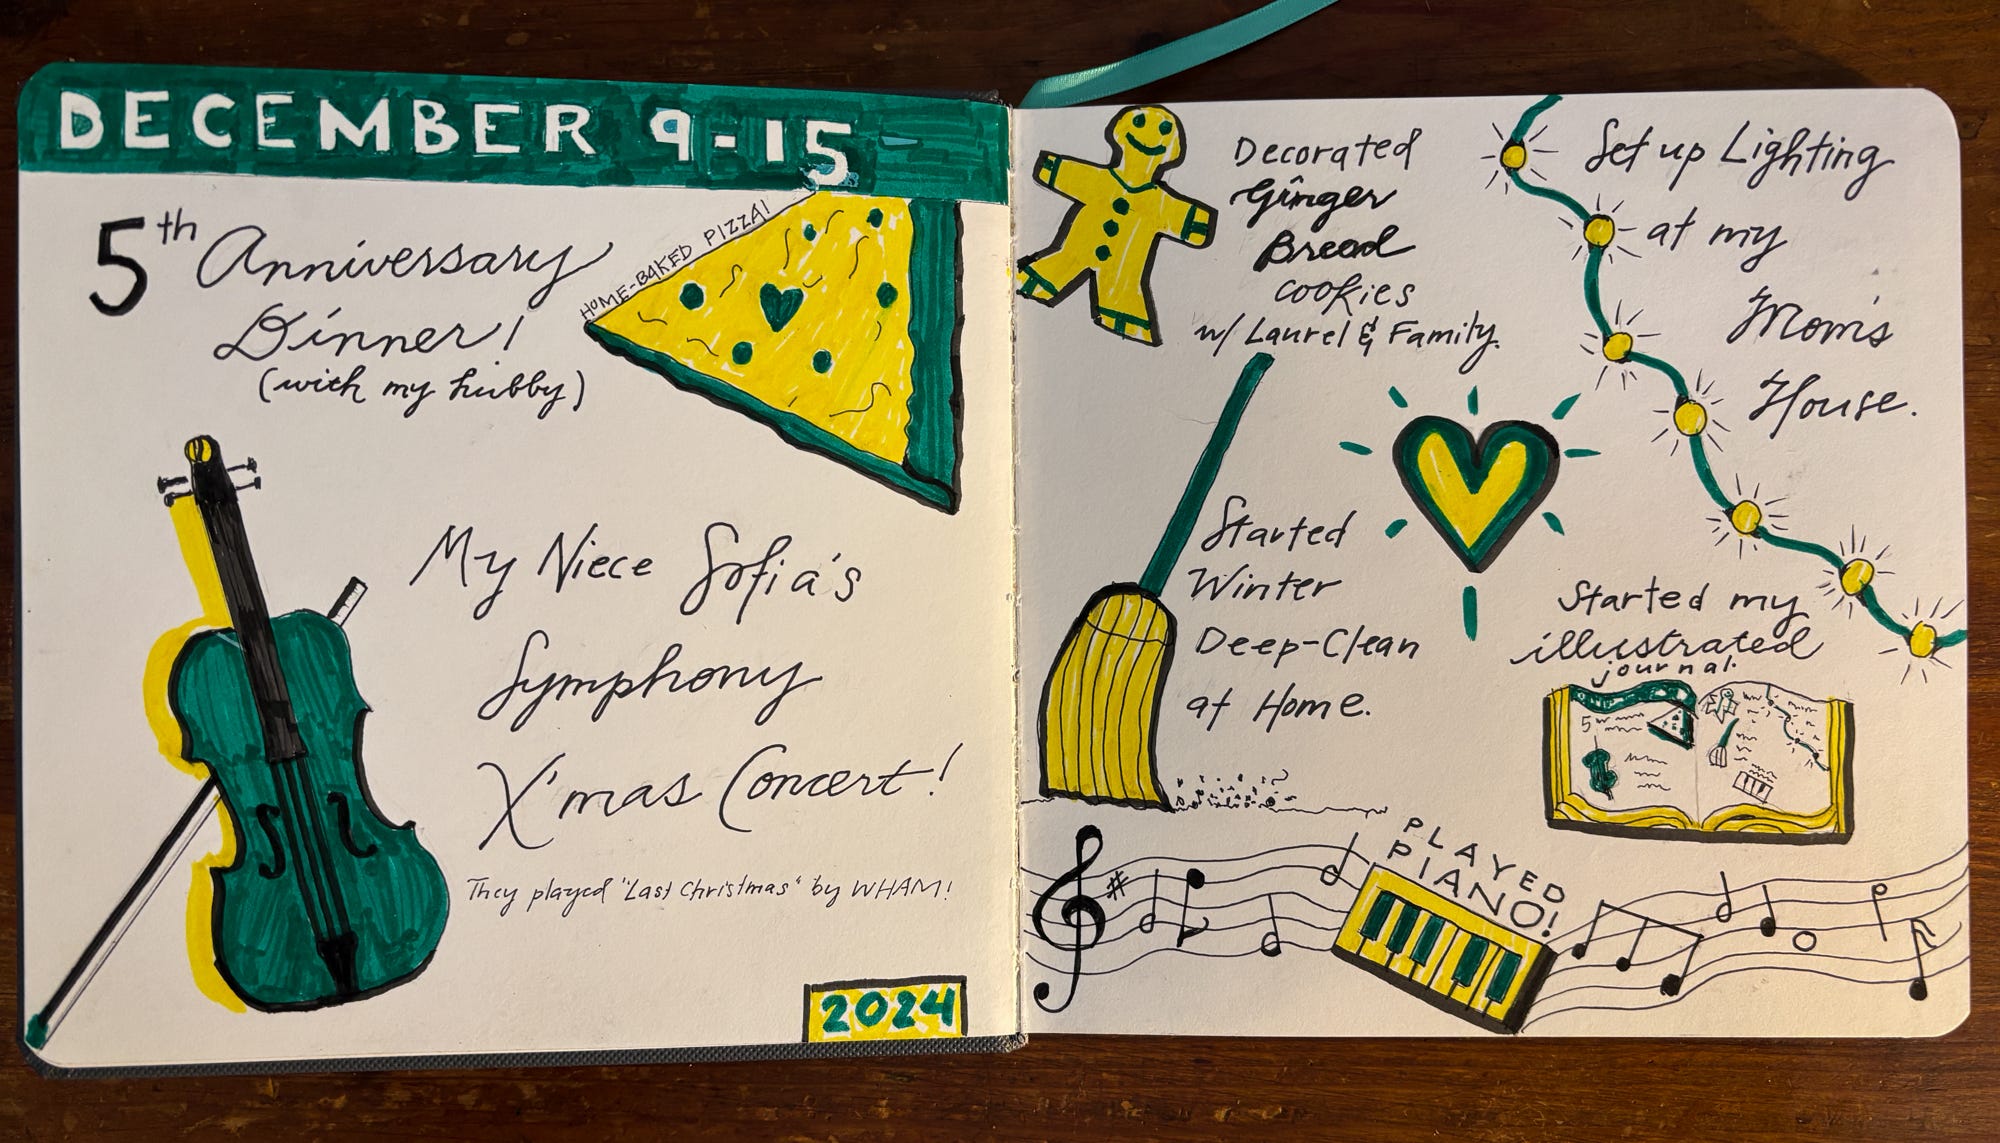 DECEMBER 9-15
5th Anniversary
Dinner!
(with my hubby)
HOME-BAKED PIZZA!
My Niece Sofia's
Symphony
X'mas Concert!
They played "Last Christmas" by WHAM!
2024
Decorated
Ginger
Bread
cookies
w/ Laurel & Family.
Set up Lighting
at my
Mom's
House.
Started
Winter
Deep-Clean
at Home.
Started my
illustrated
journal.
5
PLAYED
PIANO!